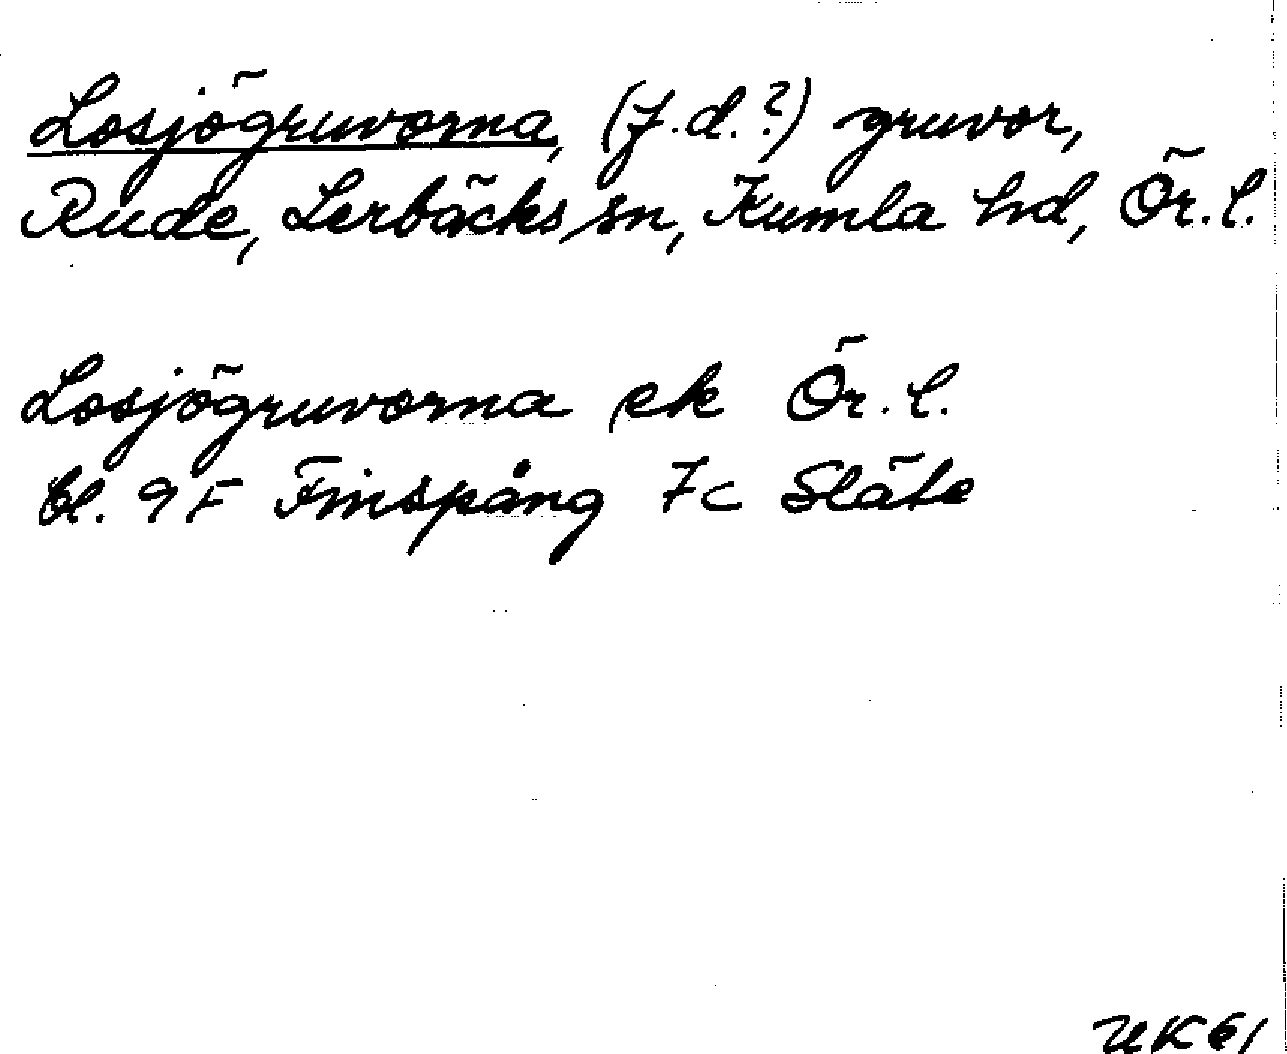 Losjögruvorna, (f.d.?) gruvor,
Rude, Lerbäcks sn, Kumla hd, Ör.l.
Losjögruvorna ek Ör.l.
bl. 9F Finspång 7c Släte
UK61